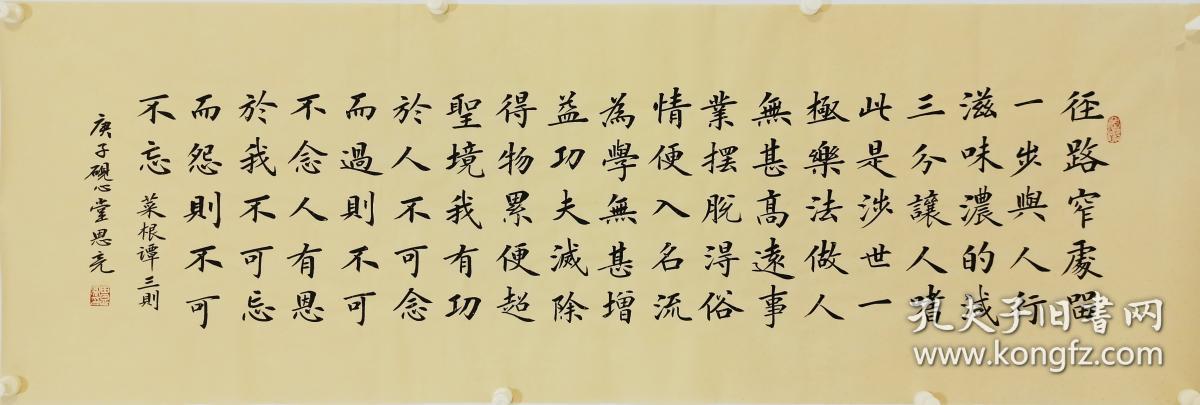 径路窄處留
一步與人行
滋味濃的減
三分讓人嗜
此是涉世一
極樂法做人
無甚髙遠事
業擺脫得俗
情便入名流
為學無甚增
益功夫減除
得物累便超
聖境我有功
於人不可念
而過則不可
不念人有恩
於我不可忘
而怨則不可
不忘 菜根谭三則
庚子砚心堂思亮
孔夫子旧书网
www.kongfz.com